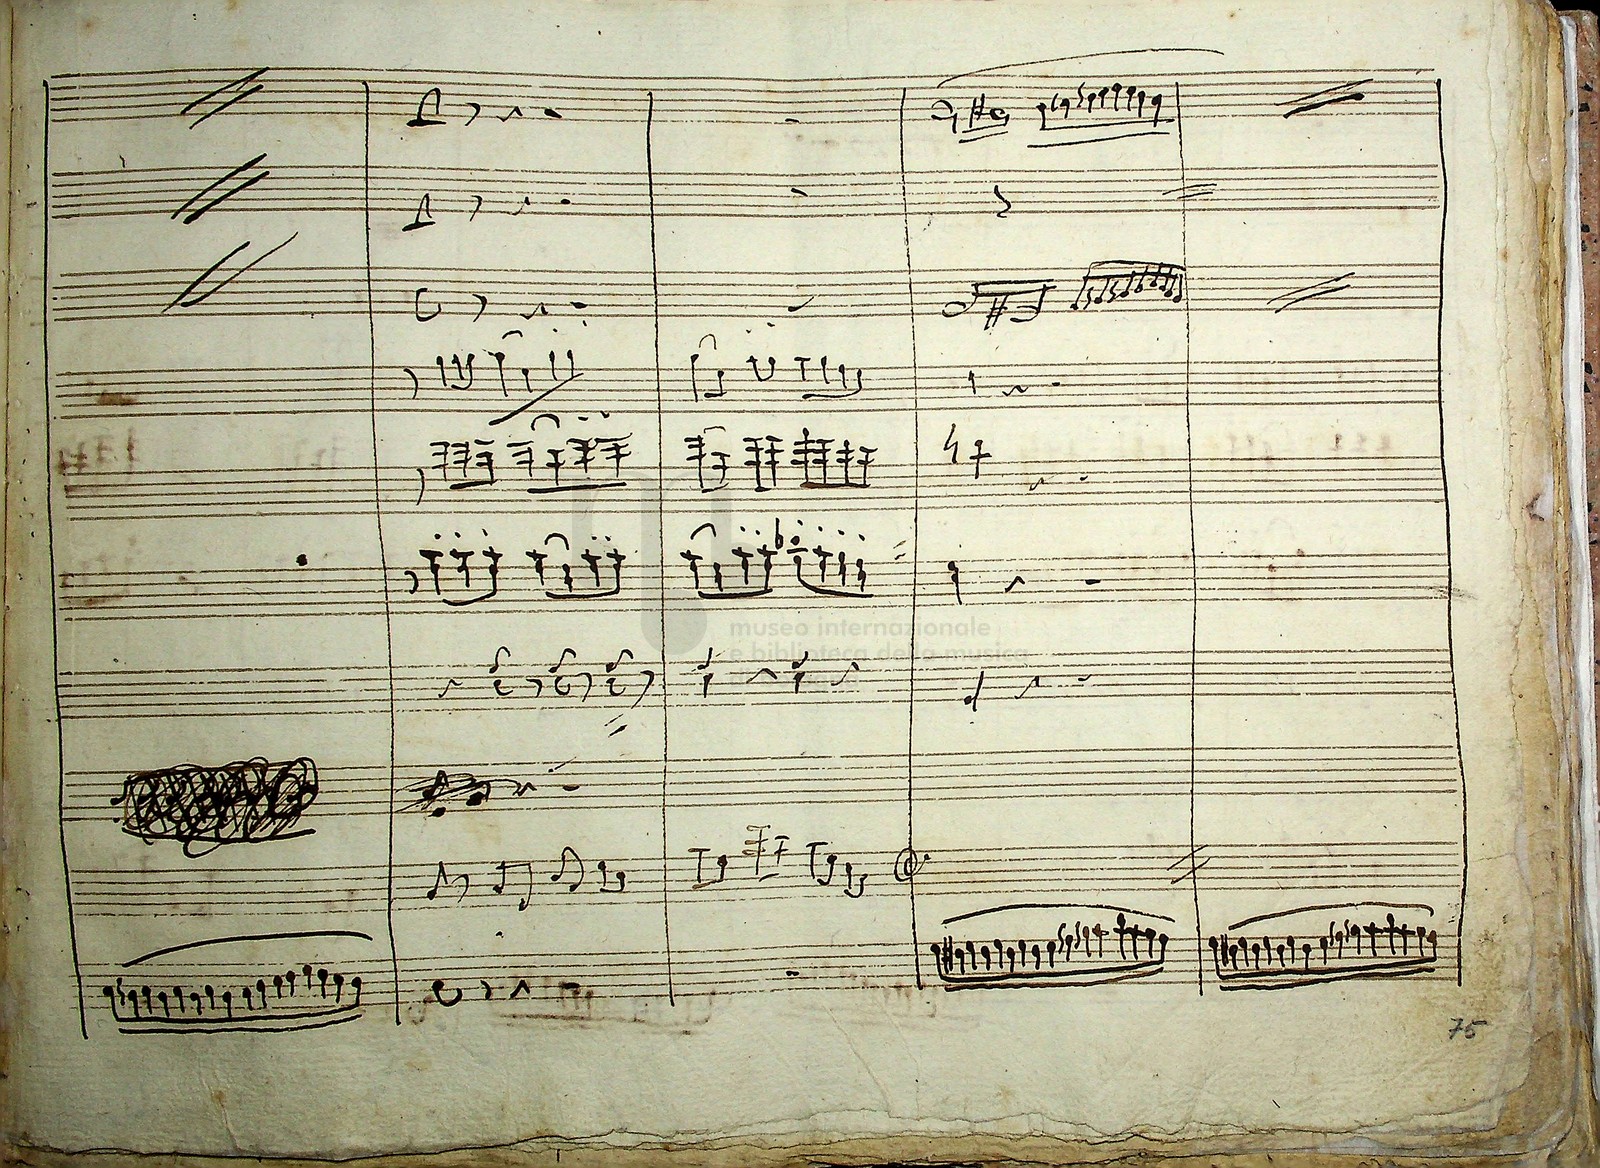 museo internazionale
e biblioteca della musica
75